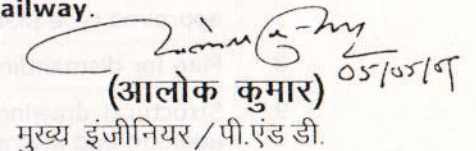 ailway.
05/05/09
(आलोक कुमार)
मुख्य इंजीनियर / पी.एंड डी.